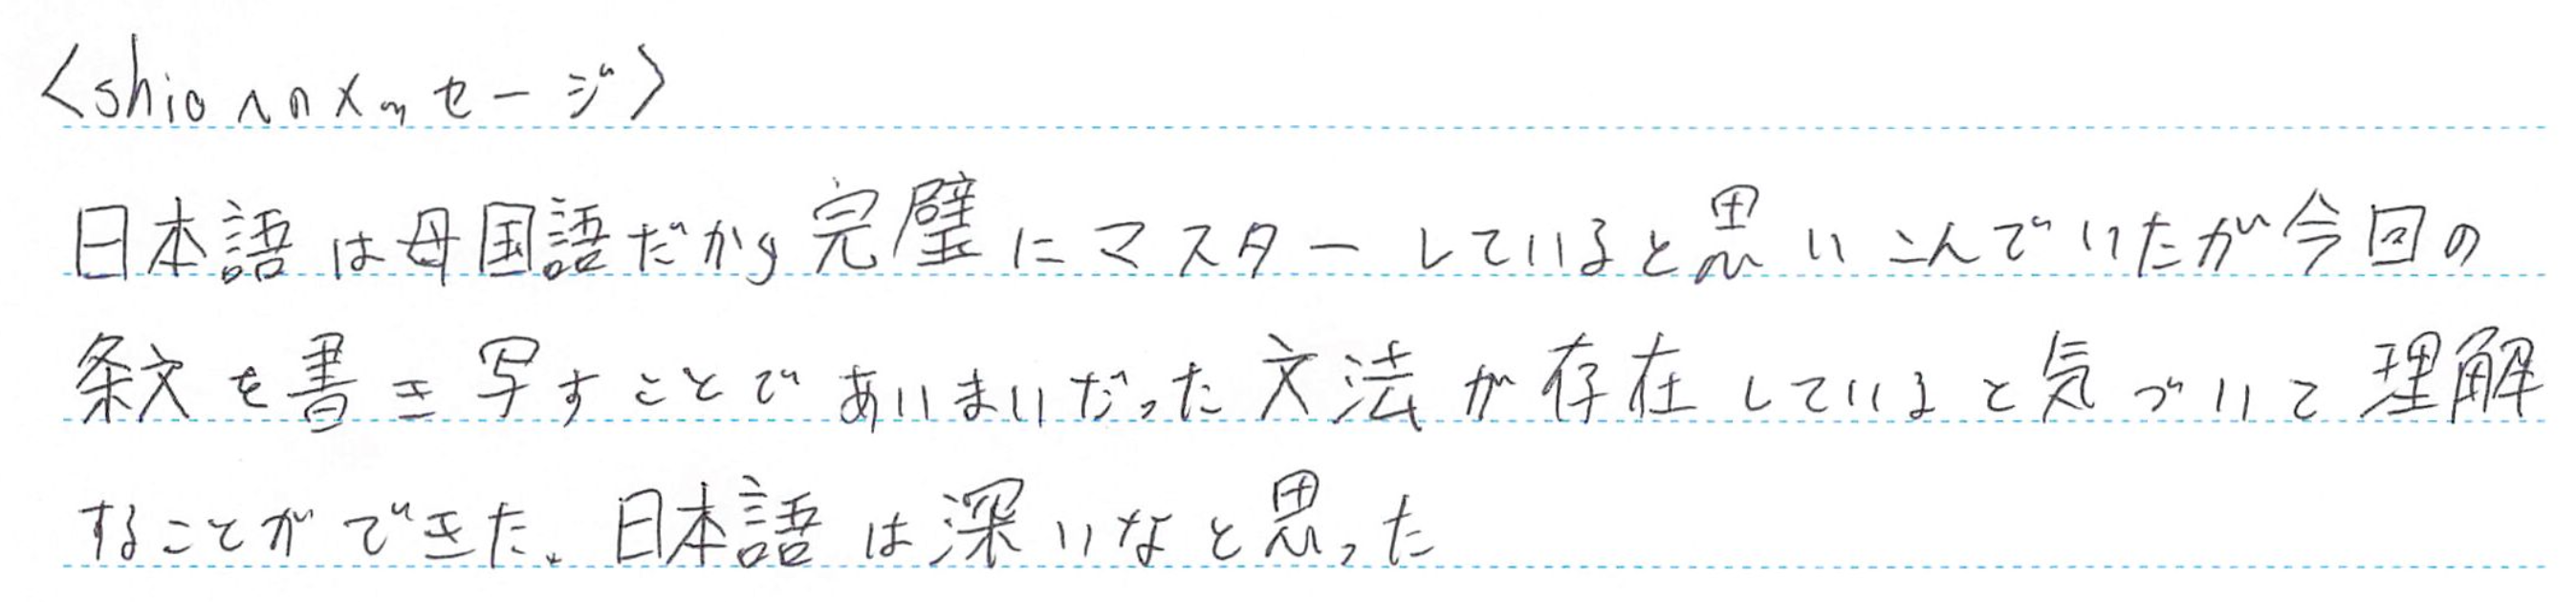 〈shioへのメッセージ〉
日本語は母国語だから完璧にマスターしていると思いこんでいたが今回の
条文を書き写すことであいまいだった文法が存在していると気づいて理解
することができた。日本語は深いなと思った